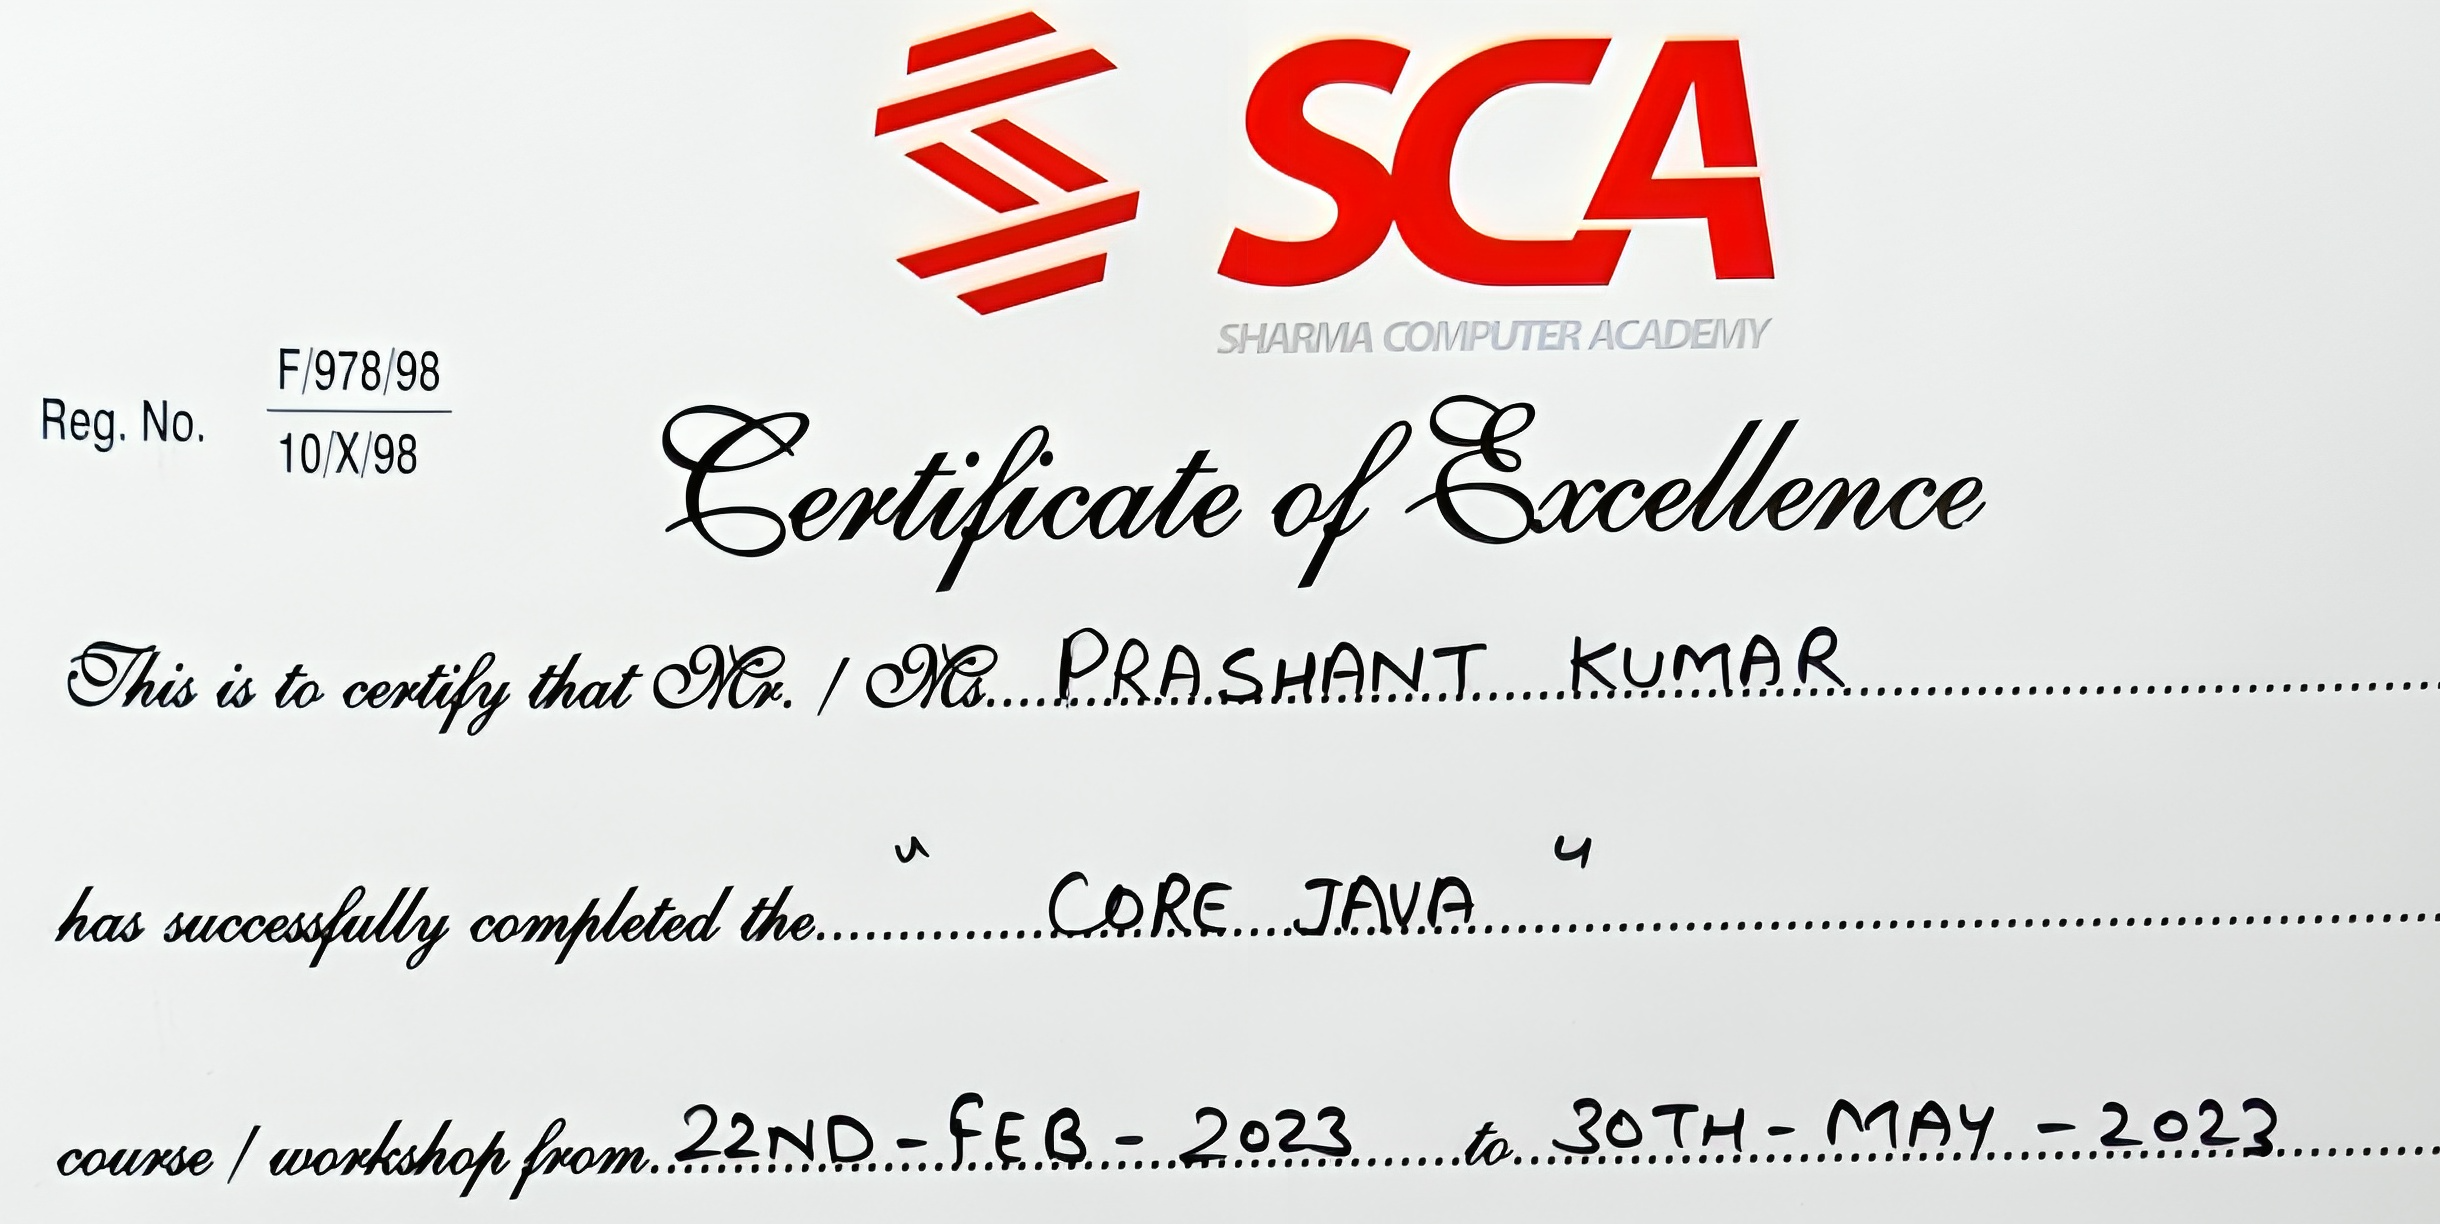 SCA
SHARMA COMPUTER ACADEMY
Reg. No. F/978/98
10/X/98
Certificate of Excellence
This is to certify that Mr. / Ms. PRASHANT KUMAR
has successfully completed the " CORE JAVA "
course / workshop from 22ND - FEB - 2023 to 30TH - MAY - 2023